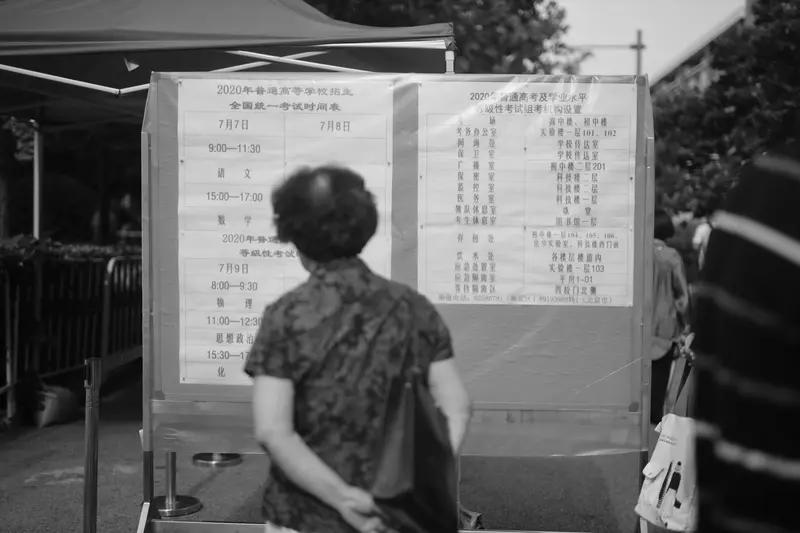 2020年普通高等学校招生
全国统一考试时间表
7月7日
7月8日
9:00—11:30
语文
15:00—17:00
数学
2020年普
等级性考试
7月9日
8:00—9:30
物理
11:00—12:30
思想政治
15:30—17
化
2020年普通高考及学业水平
等级性考试组考机构设置
场 高中楼、初中楼
考务办公室 实验楼一层101、102
学校传达室
保卫室 学校传达室
广播室 初中楼二层201
保密室 科技楼二层
监控室 科技楼二层
医务室 科技楼一层
领队休息室 食堂
考生休息室 图书馆一层
存包处 初中楼一层104、105、106、
饮水处 各楼层楼道内
应急处置室 实验楼一层103
应急隔离室 平房1-01
等待隔离区 西校门北侧